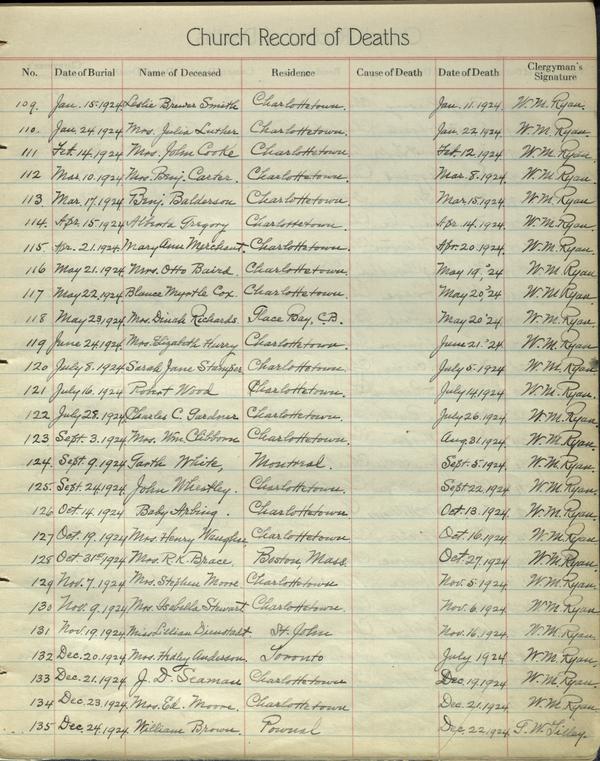 Church Record of Deaths
No. Date of Burial Name of Deceased Residence Cause of Death Date of Death Clergyman's Signature
109. Jan. 15. 1924 Leslie Brewer Smith Charlottetown. Jan. 11. 1924 W. M. Ryan.
110. Jan. 24 1924 Mrs. Julia Luther. Charlottetown. Jan. 22 1924 W. M. Ryan.
111 Feb. 14. 1924 Mrs. John Cooke Charlottetown. Feb. 12 1924 W. M. Ryan.
112 Mar. 10. 1924 Mrs. Benj. Carter. Charlottetown. Mar. 8. 1924 W. M. Ryan.
113 Mar. 17. 1924 Benj. Balderson Charlottetown. Mar. 15. 1924 W. M. Ryan.
114. Apr. 15. 1924 Alberta Gregory Charlottetown. Apr. 14. 1924. W. M. Ryan.
115 Apr. 21. 1924 Mary Ann Merchant. Charlottetown. Apr. 20 1924 W. M. Ryan.
116 May 21. 1924 Mrs. Otto Baird. Charlottetown. May 19. '24 W. M. Ryan.
117 May 22. 1924 Blance Myrtle Cox. Charlottetown. May 20, '24 W. M. Ryan.
118 May 23, 1924 Mrs. Dinah Richards. Glace Bay, C.B. May 20 '24. W. M. Ryan.
119 June 24. 1924 Mrs. Elizabeth Hurry Charlottetown. June 21. '24 W. M. Ryan.
120 July 8. 1924 Sarah Jane Stamper Charlottetown. July 5. 1924 W. M. Ryan.
121 July 16. 1924 Robert Wood Charlottetown. July 14. 1924 W. M. Ryan.
122 July 28. 1924 Charles C. Gardner Charlottetown. July 26. 1924 W. M. Ryan.
123 Sept. 3. 1924 Mrs. Wm. Clibborne Charlottetown. Aug. 31. 1924 W. M. Ryan.
124. Sept. 9. 1924 Garth White, Montreal. Sept. 5. 1924. W. M. Ryan.
125. Sept. 24 1924 John Wheatley. Charlottetown. Sept 22. 1924 W. M. Ryan.
126 Oct. 14. 1924 Baby Charlottetown Oct. 13. 1924 W. M. Ryan.
127 Oct. 19. 1924 Mrs. Henry Charlottetown. Oct. 16. 1924 W. M. Ryan.
128 Oct. 31st 1924 Mrs. R. K. Brace. Boston, Mass. Oct. 27, 1924 W. M. Ryan.
129 Nov. 7. 1924 Mrs. Stephen Moore Charlottetown Nov. 5 1924 W. M. Ryan.
130 Nov. 9. 1924 Mrs. Isabella Stewart Charlottetown. Nov. 6. 1924 W. M. Ryan.
131 Nov. 19. 1924 Miss Lillian St. John Nov. 16. 1924. W. M. Ryan.
132 Dec. 20. 1924 Mrs. Hedley Anderson. Toronto July 1924 W. M. Ryan.
133 Dec. 21. 1924 J. D. Seaman Charlottetown Dec. 19. 1924 W. M. Ryan.
134 Dec. 23. 1924 Mrs. Ed. Moore. Charlottetown Dec. 21. 1924 W. M. Ryan.
135 Dec. 24. 1924 William Brown. Pownal Dec. 22. 1924 T. W. Tilley